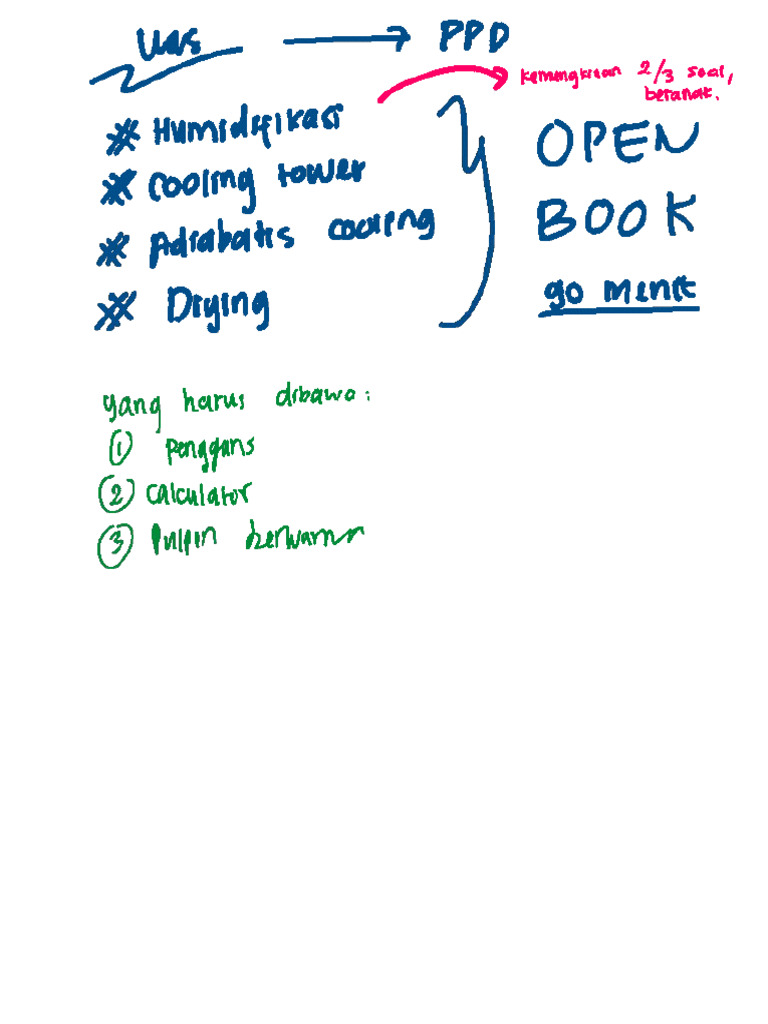 Uas → PPD
kemungkinan 2/3 soal,
beranak.
* Humidifikasi
* Cooling tower
* Adiabatis cooling
* Drying
OPEN
BOOK
90 menit
yang harus dibawa:
① Penggaris
② Calculator
③ Pulpen berwarna